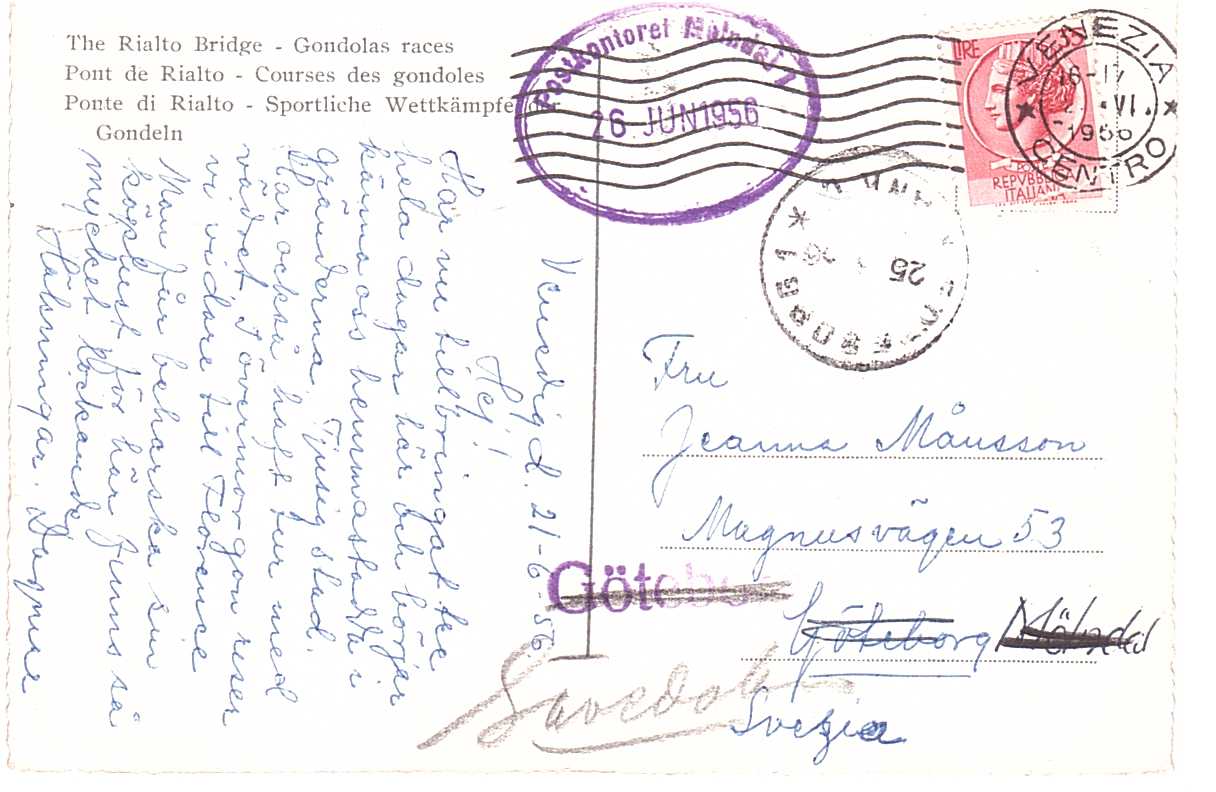 The Rialto Bridge - Gondolas races
Pont de Rialto - Courses des gondoles
Ponte di Rialto - Sportliche Wettkämpfe der
Gondeln
Postkontoret Mölndal 1
26 JUN 1956
LIRE 35
REPVBBLICA
ITALIANA
VENEZIA
16-17
VI.
1956
CENTRO
25
Venedig d. 21-6-56
Hej!
Har nu tillbringat tre
hela dagar här och börjar
känna oss hemmastadda i
gränderna. Tjusig stad.
Har också haft tur med
vädret. I övermorgon reser
vi vidare till Florence
Man får behärska sin
köplust för här finns så
mycket lockande
Hälsningar. Dagmar
Fru
Jeanna Månsson
Magnusvägen 53
Göteborg Mölndal
Svezia
Göteborg